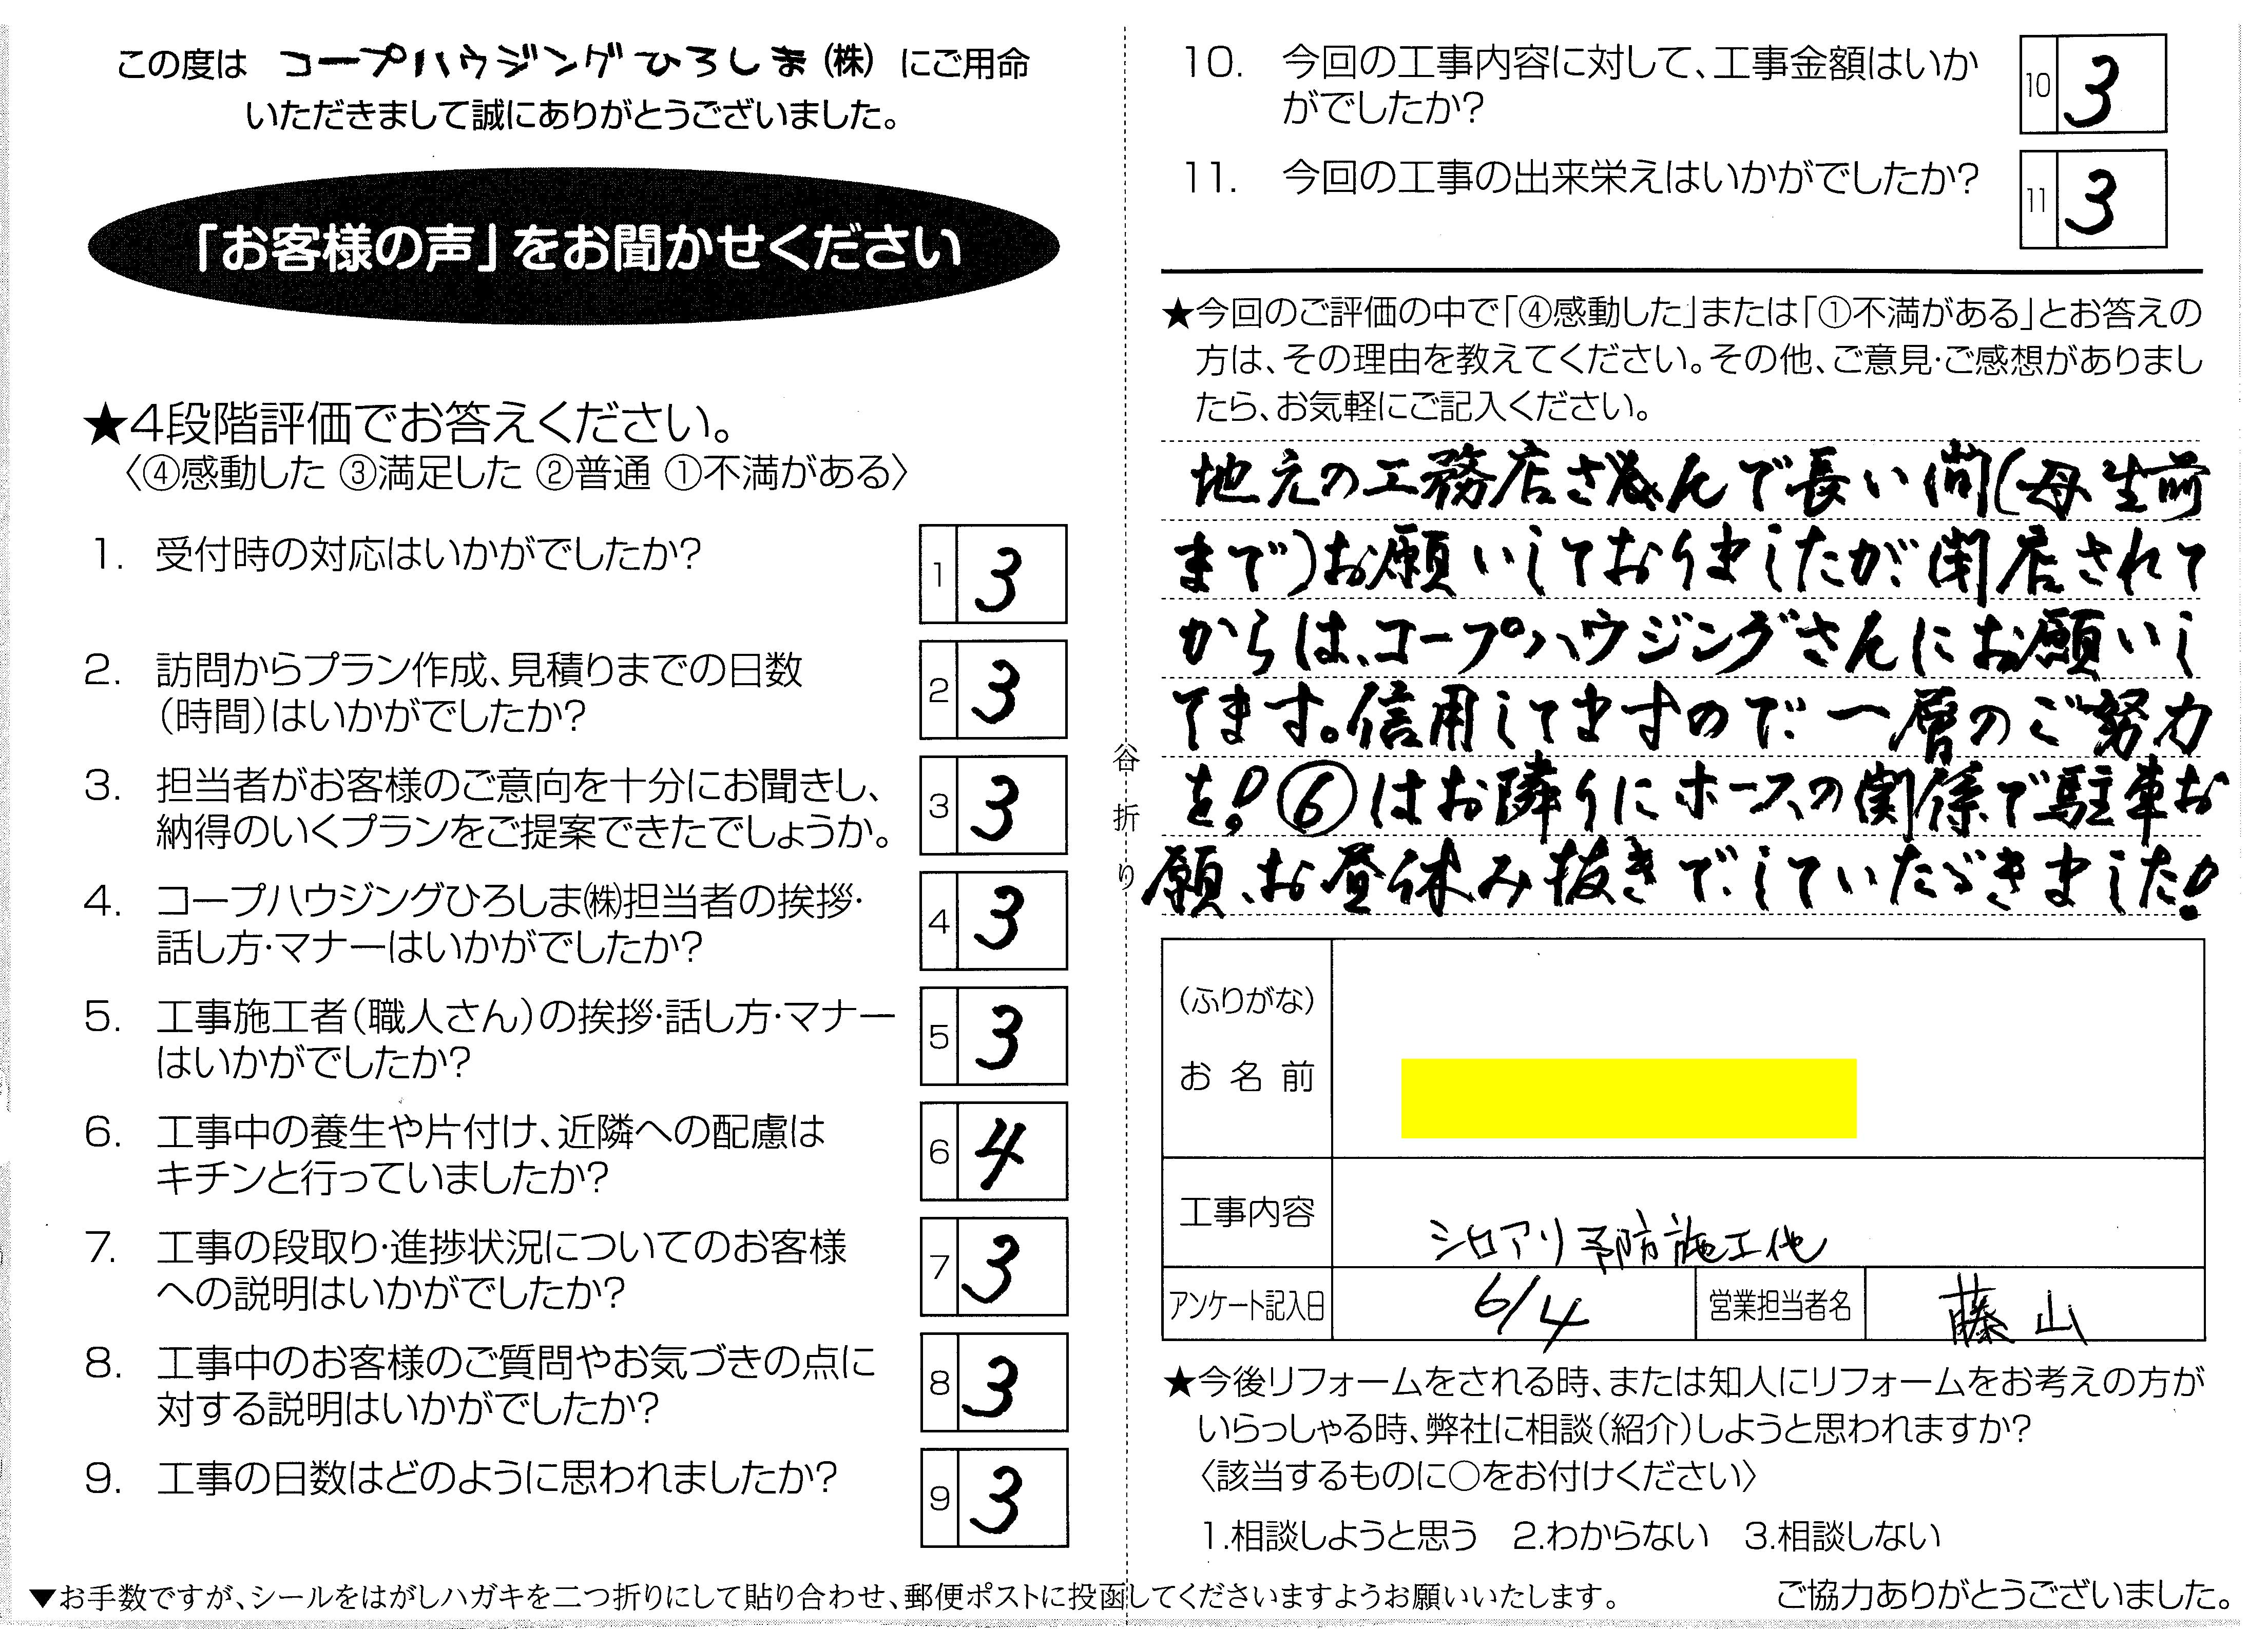 この度は コープハウジングひろしま(株) にご用命
いただきまして誠にありがとうございました。
「お客様の声」をお聞かせください
★4段階評価でお答えください。
〈④感動した ③満足した ②普通 ①不満がある〉
1. 受付時の対応はいかがでしたか?
1 3
2. 訪問からプラン作成、見積りまでの日数
(時間)はいかがでしたか?
2 3
3. 担当者がお客様のご意向を十分にお聞きし、
納得のいくプランをご提案できたでしょうか。
3 3
4. コープハウジングひろしま㈱担当者の挨拶・
話し方・マナーはいかがでしたか?
4 3
5. 工事施工者(職人さん)の挨拶・話し方・マナー
はいかがでしたか?
5 3
6. 工事中の養生や片付け、近隣への配慮は
キチンと行っていましたか?
6 4
7. 工事の段取り・進捗状況についてのお客様
への説明はいかがでしたか?
7 3
8. 工事中のお客様のご質問やお気づきの点に
対する説明はいかがでしたか?
8 3
9. 工事の日数はどのように思われましたか?
9 3
谷折り
10. 今回の工事内容に対して、工事金額はいか
がでしたか?
10 3
11. 今回の工事の出来栄えはいかがでしたか?
11 3
★今回のご評価の中で「④感動した」または「①不満がある」とお答えの
方は、その理由を教えてください。その他、ご意見・ご感想がありまし
たら、お気軽にご記入ください。
地元の工務店さんで長い間(母生前
まで)お願いしておりましたが、閉店されて
からは、コープハウジングさんにお願いし
てます。信用してますので、一層のご努力
を! ⑥はお隣りにホースの関係で駐車お
願、お昼休み抜きで、していただきました!
(ふりがな)
お名前
工事内容 シロアリ予防施工他
アンケート記入日 6/4 営業担当者名 藤山
★今後リフォームをされる時、または知人にリフォームをお考えの方が
いらっしゃる時、弊社に相談(紹介)しようと思われますか?
〈該当するものに○をお付けください〉
1.相談しようと思う 2.わからない 3.相談しない
▼お手数ですが、シールをはがしハガキを二つ折りにして貼り合わせ、郵便ポストに投函してくださいますようお願いいたします。
ご協力ありがとうございました。